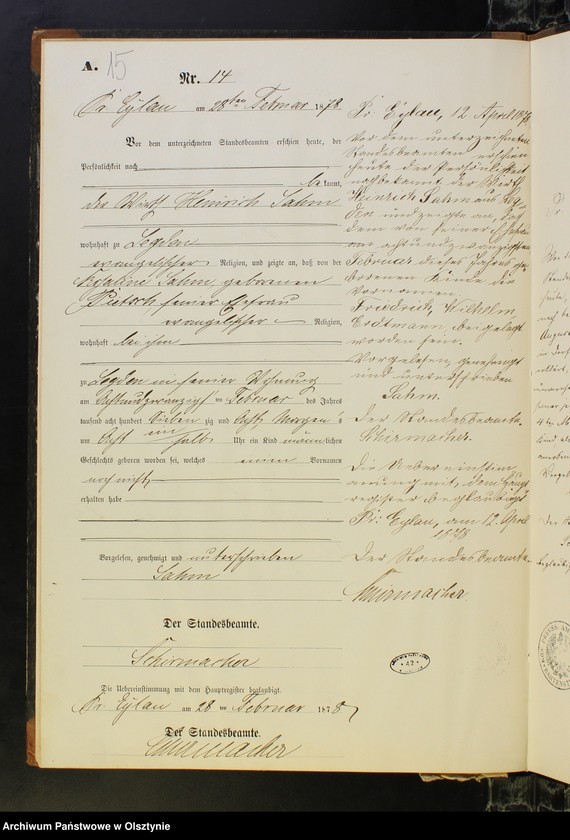 A.
15
Nr. 14
Pr. Eylau am 28ten Februar 1878
Vor dem unterzeichneten Standesbeamten erschien heute, der
Persönlichkeit nach
bekannt,
der Wirth Heinrich Sahm
wohnhaft zu Legden
evangelischer Religion, und zeigte an, daß von der
Sahm geborenen
seiner Ehefrau
evangelischer Religion,
wohnhaft bei ihm
zu Legden in seiner Wohnung
am achtundzwanzigsten Februar des Jahres
tausend acht hundert siebenzig und acht Morgens
um acht ein halb Uhr ein Kind männlichen
Geschlechts geboren worden sei, welches einen Vornamen
noch nicht
erhalten habe
Vorgelesen, genehmigt und unterschrieben
Sahm
Der Standesbeamte.
Schirmacher
Die Uebereinstimmung mit dem Hauptregister beglaubigt.
Pr. Eylau am 28ten Februar 1878
Der Standesbeamte.
Schirmacher
Pr. Eylau, 12 April 1878
Vor dem unterzeichneten
Standesbeamten erschien
heute, der Persönlichkeit
nach bekannt, der Wirth
Heinrich Sahm aus Leg-
den und zeigte an, daß
dem von seiner Ehefrau
am achtundzwanzigsten
Februar dieses Jahres ge-
borenen Kinde die
Vornamen
Friedrich, Wilhelm,
Erdtmann, beigelegt
worden seien.
Vorgelesen, genehmigt
und unterschrieben
Sahm.
Der Standesbeamte.
Schirmacher.
Die Ueberein stim
mung mit dem Haupt
register beglaubigt
Pr. Eylau, am 12. April
1878
Der Standesbeamte.
Schirmacher.
42
Archiwum Państwowe w Olsztynie